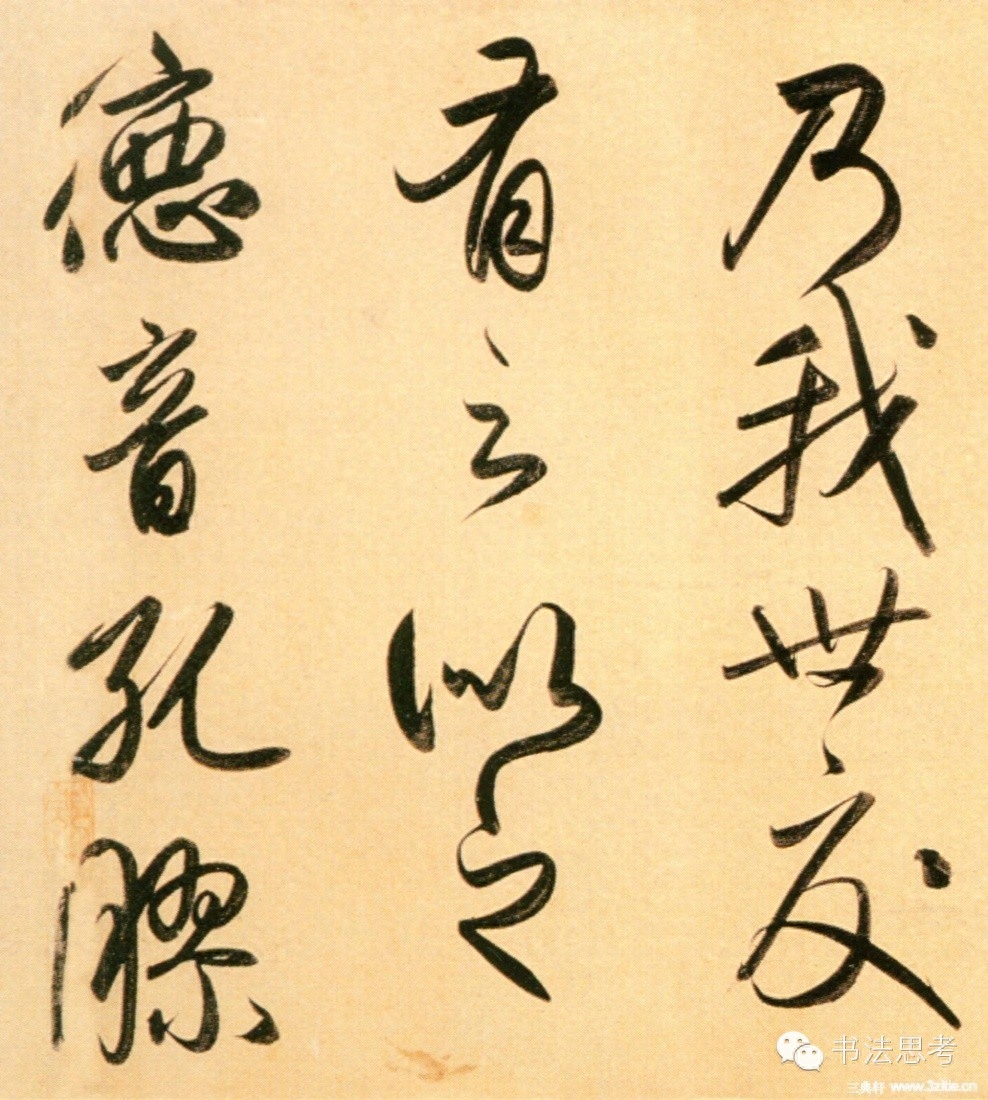 乃我世友
有之似之
德音孔膠
书法思考
三典轩 www.3zitie.cn